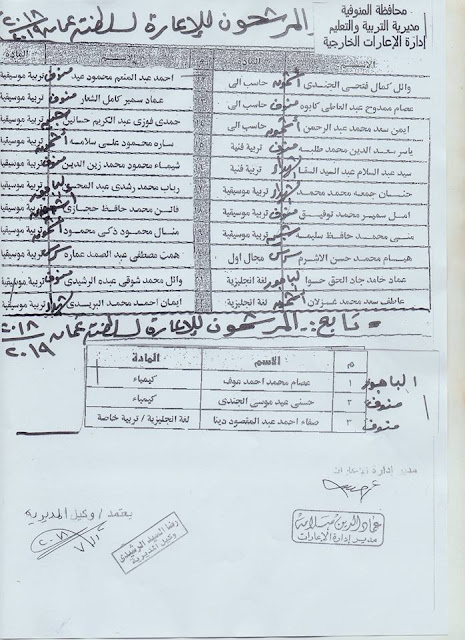 محافظة المنوفية
مديرية التربية والتعليم
إدارة الإعارات الخارجية
المرشحون للإعارة لسلطنة عمان ٢٠١٨ / ٢٠١٩
المادة
وائل كمال فتحى الجندى أشمون حاسب الى
عصام ممدوح عبد العاطى كابوه منوف حاسب الى
ايمن سعد محمد عبد الرحمن أشمون حاسب الى
ياسر سعد الدين محمد طلبه منوف تربية فنية
سيد عبد السلام عبد السيد السقا تربية فنية
حنان جمعه محمد محمد تربية موسيقية
امل سمير محمد توفيق منوف تربية موسيقية
منى محمد حافظ سليمه تربية موسيقية
هيثم محمد حسن الاشرم مجال اول
عماد حامد جاد الحق الباجور لغة انجليزية
عاطف سعد محمد غزلان أشمون لغة انجليزية
المادة
احمد عبد المنعم محمود عيد منوف تربية موسيقية
عماد سمير كامل الشعار منوف تربية موسيقية
حمدى فوزى عبد الكريم حسانين تربية موسيقية
ساره محمود على سلامه أشمون تربية موسيقية
شيماء محمود محمد زين الدين منوف تربية موسيقية
رباب محمد رشدى عبد الباجور تربية موسيقية
فاتن محمد حافظ حجازى تربية موسيقية
منال محمود ذكى محمود تربية موسيقية
همت مصطفى عبد الصمد عماره تربية موسيقية
وائل محمد شوقى عبده الرشيدى منوف تربية موسيقية
ايمان احمد محمد البريدى تربية موسيقية
تابع :- المرشحون للإعارة لسلطنة عمان ٢٠١٨ / ٢٠١٩
م الاسم المادة
١ عصام محمد احمد عوف كيمياء الباجور
٢ حسنى عيد موسى الجندى كيمياء منوف
٣ صفاء احمد عبد المقصود دينا لغة انجليزية / تربية خاصة منوف
مدير إدارة الاعارات
عماد الدين سلامة
مدير إدارة الإعارات
يعتمد / وكيل المديرية
رضا السيد الرشيدى
وكيل المديرية